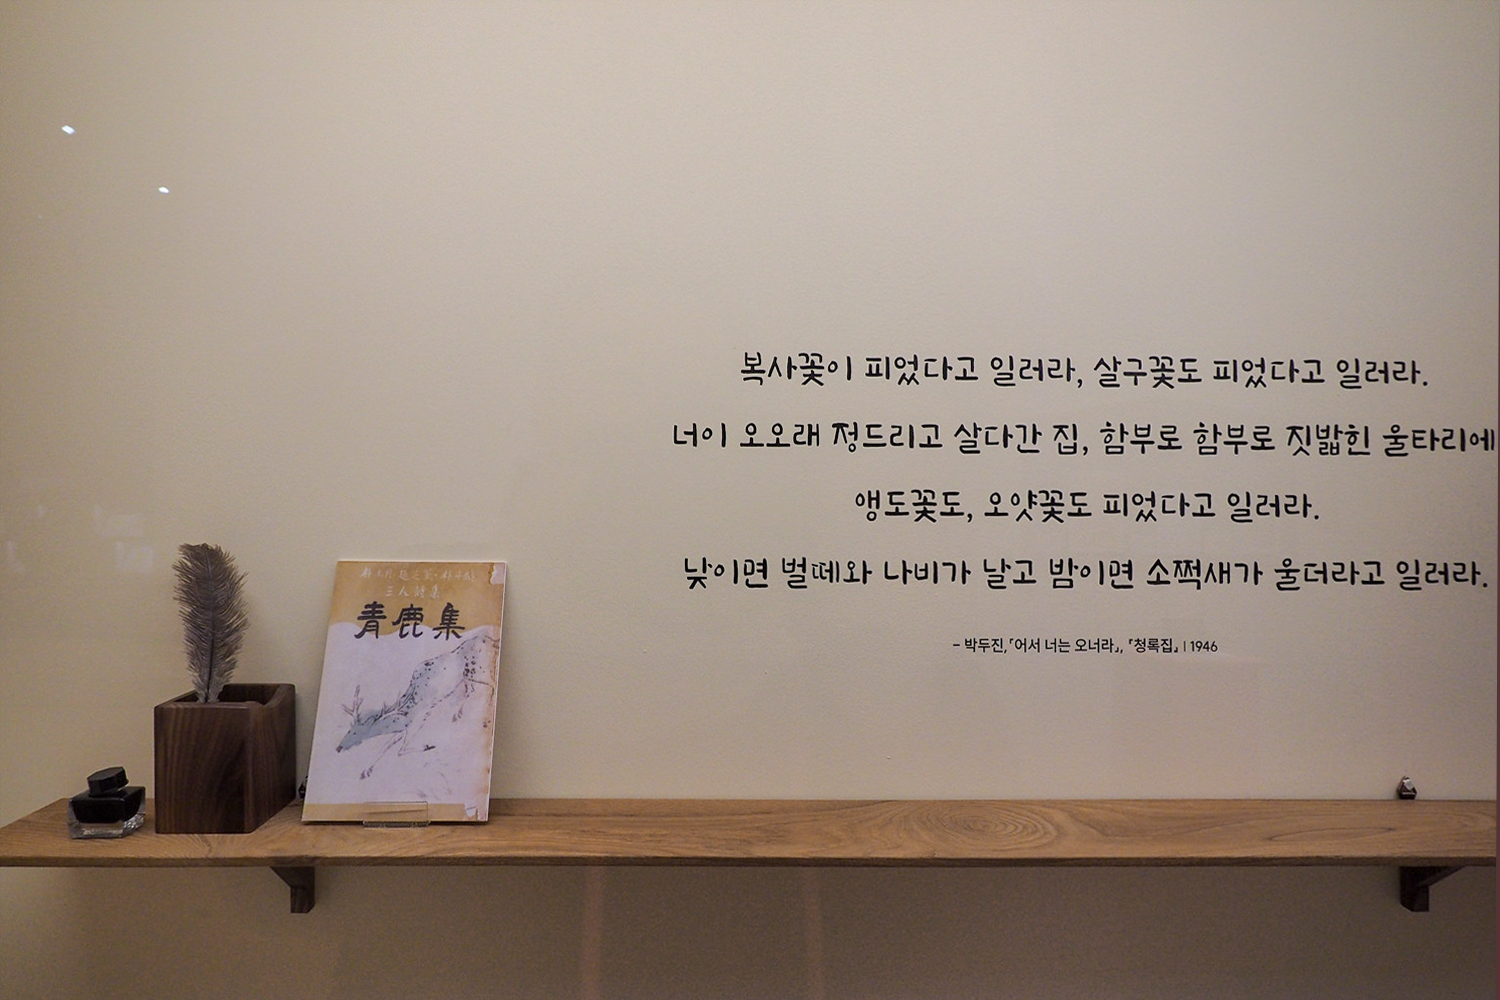 三人詩集
青鹿集
복사꽃이 피었다고 일러라, 살구꽃도 피었다고 일러라.
너이 오오래 정드리고 살다간 집, 함부로 함부로 짓밟힌 울타리에
앵도꽃도, 오얏꽃도 피었다고 일러라.
낮이면 벌떼와 나비가 날고 밤이면 소쩍새가 울더라고 일러라.
– 박두진, 「어서 너는 오너라」, 『청록집』 | 1946